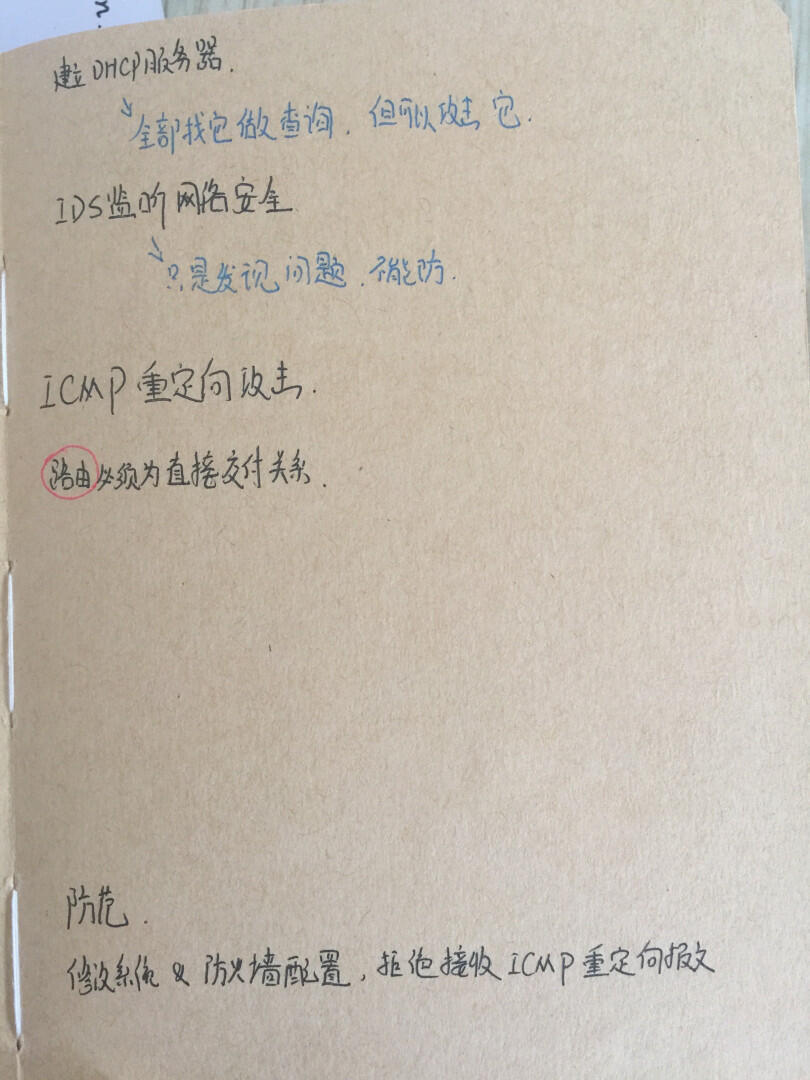 建立DHCP服务器.
↘全部找它做查询. 但可以攻击它.
IDS监听网络安全
↘只是发现问题. 不能防.
ICMP重定向攻击.
路由必须为直接交付关系.
防范.
修改系统 & 防火墙配置, 拒绝接收ICMP重定向报文